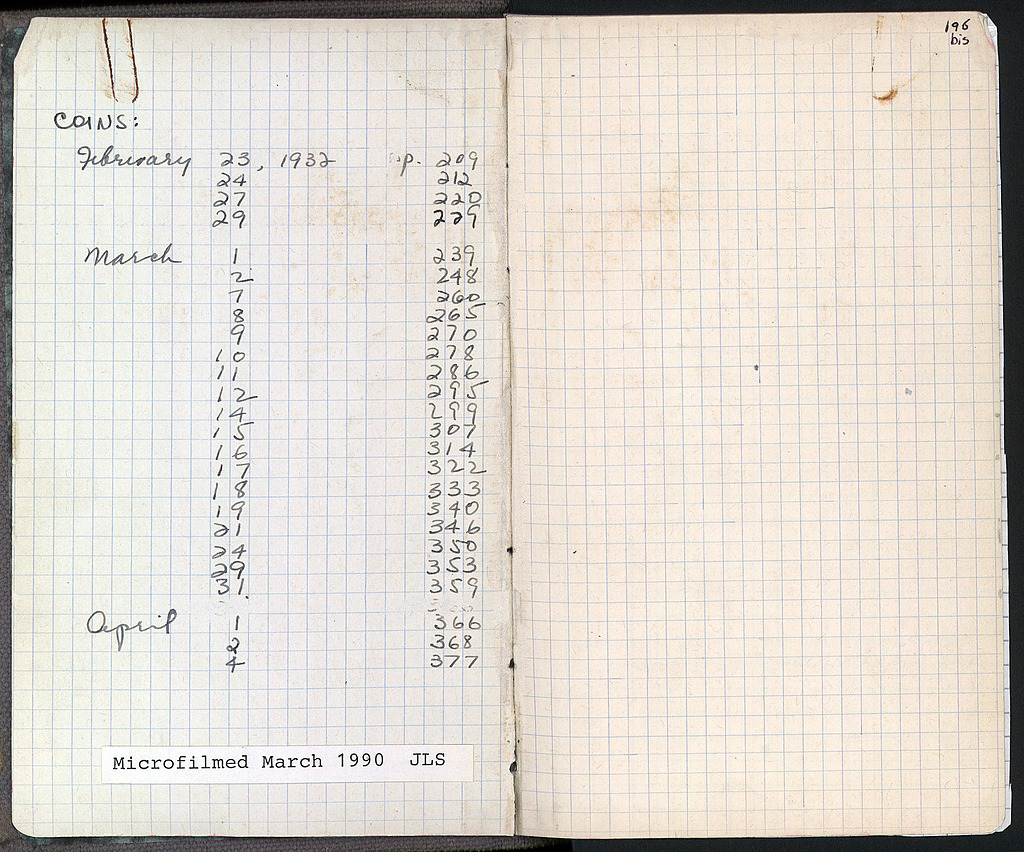 COINS:
February 23, 1932 pp. 209
24 212
27 220
29 229
March 1 239
2 248
7 260
8 265
9 270
10 278
11 286
12 295
14 299
15 307
16 314
17 322
18 333
19 340
21 346
24 350
29 353
31. 359
April 1 366
2 368
4 377
Microfilmed March 1990 JLS
196
bis